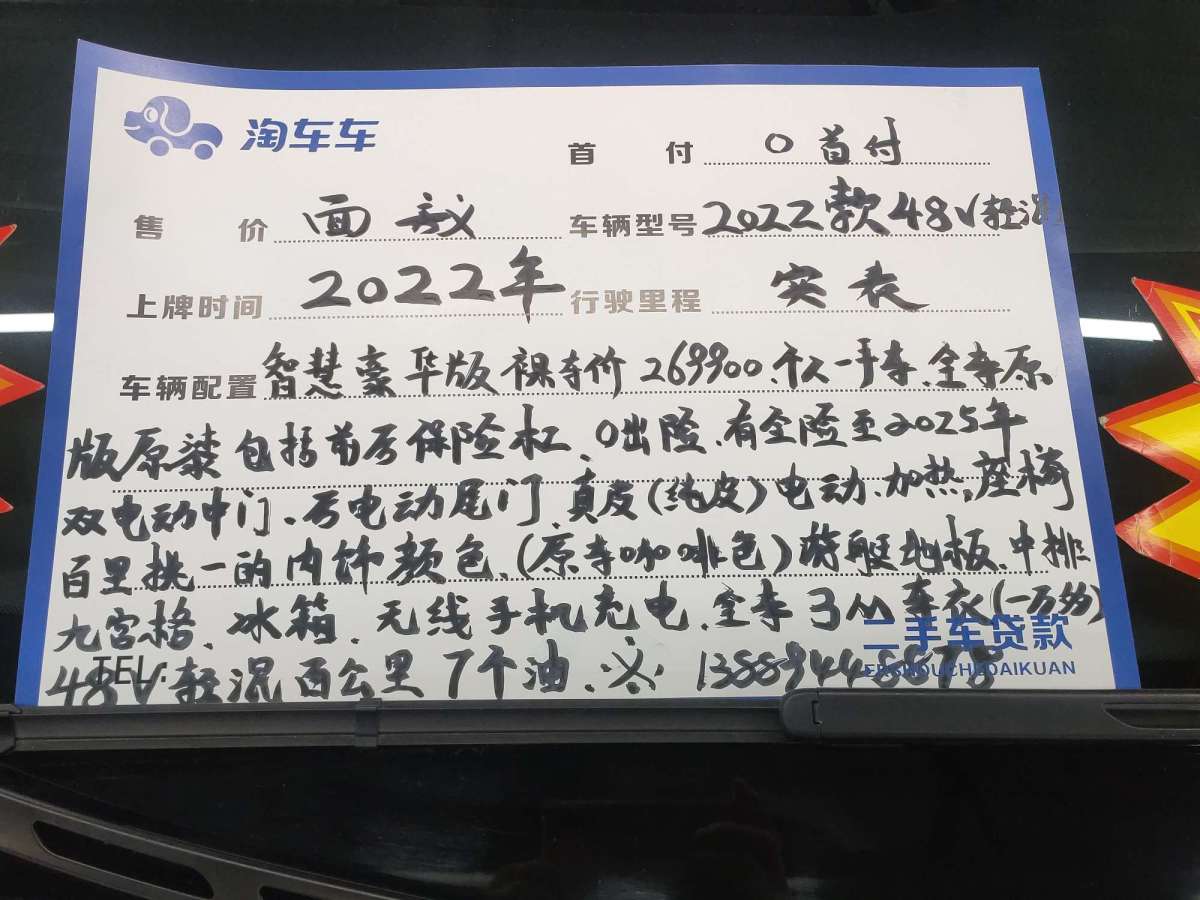 淘车车
首付 0首付
售价 面议 车辆型号 2022款48V轻混
上牌时间 2022年 行驶里程 实表
车辆配置 智慧豪华版 裸车价269900、个人一手车、全车原
版原漆包括前后保险杠、0出险、有全险至2025年
双电动中门、后电动尾门、真皮(纯皮)电动、加热、座椅
百里挑一的内饰颜色、(原车咖啡色)游艇地板、中排
九宫格、冰箱、无线手机充电、全车3M车衣(一万多)
二手车贷款
TEL:
ERSHOUCHEDAIKUAN
48V轻混百公里7个油、